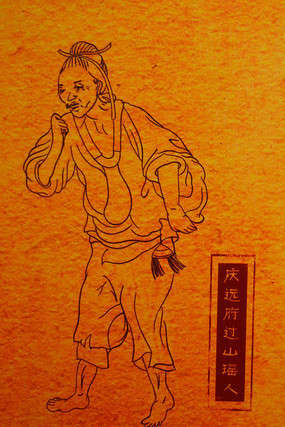 庆远府过山瑶人